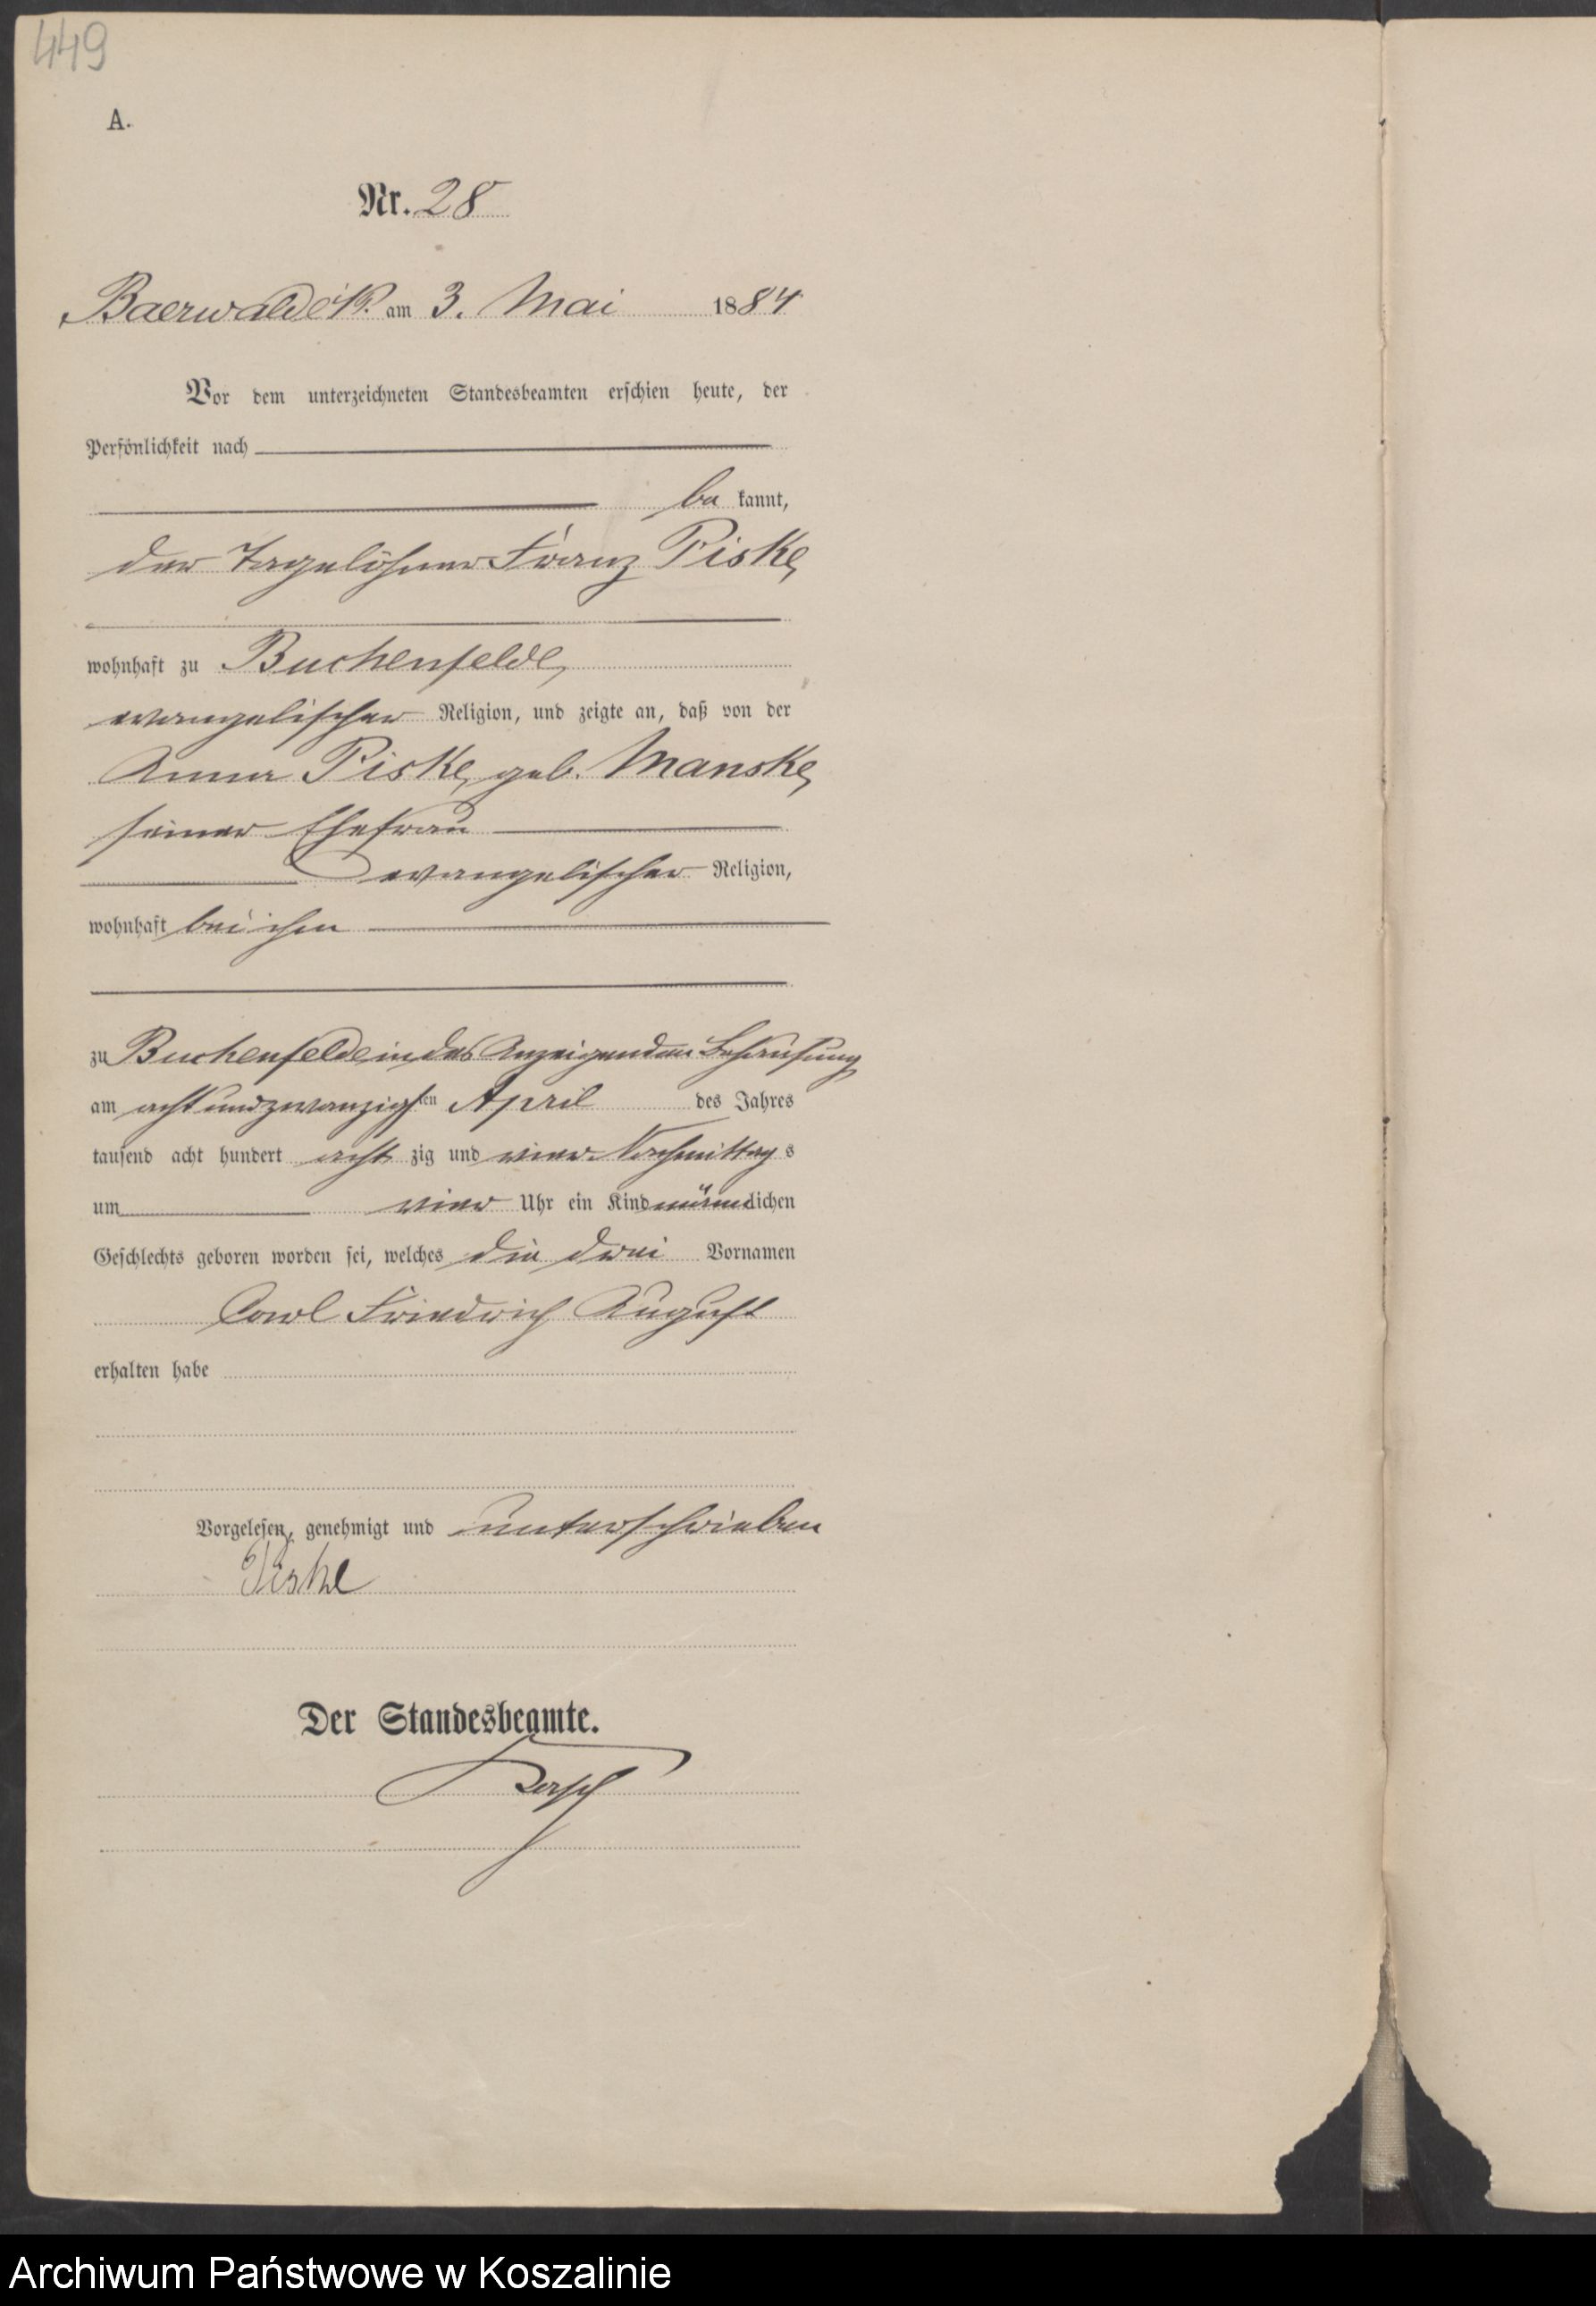 449
A.
Nr. 28
Baerwalde i/P. am 3. Mai 1884
Vor dem unterzeichneten Standesbeamten erschien heute, der
Persönlichkeit nach
be kannt,
der Tagelöhner Franz Piske,
wohnhaft zu Buchenfelde,
evangelischer Religion, und zeigte an, daß von der
Anna Piske, geb. Manske,
seiner Ehefrau
evangelischer Religion,
wohnhaft bei ihm
zu Buchenfelde in des Anzeigenden Behausung
am acht und zwanzigsten April des Jahres
tausend acht hundert acht zig und vier Nachmittag s
um vier Uhr ein Kind männlichen
Geschlechts geboren worden sei, welches die drei Vornamen
Carl Friedrich August
erhalten habe
Vorgelesen, genehmigt und unterschrieben
Piske
Der Standesbeamte.
Archiwum Państwowe w Koszalinie